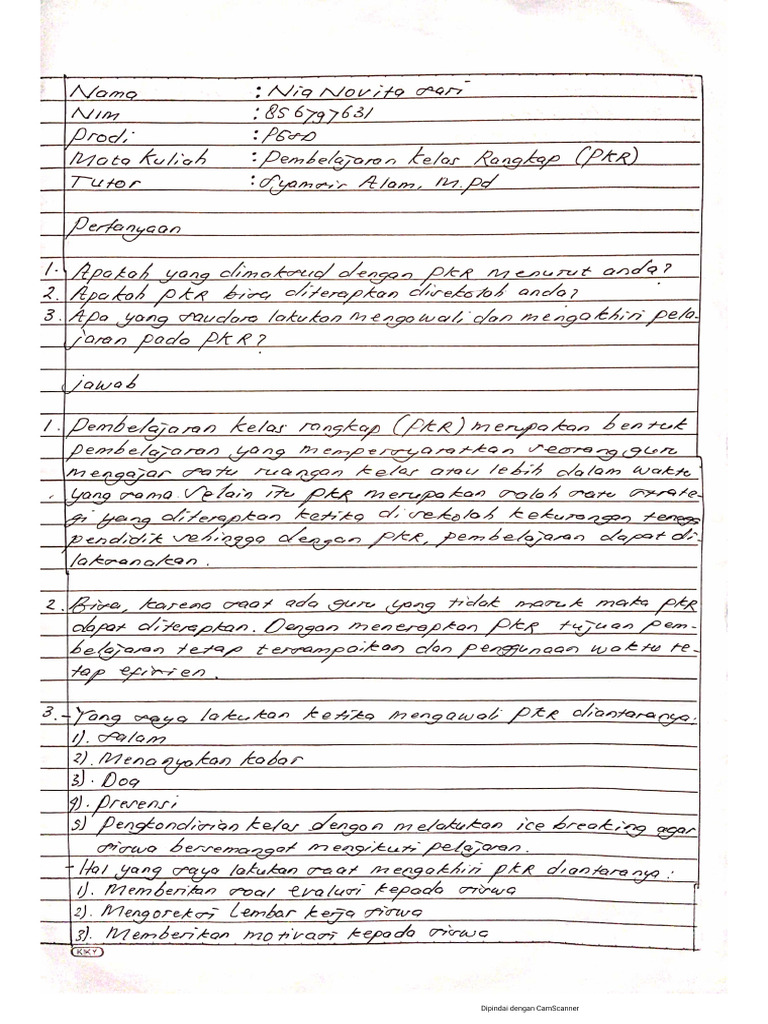 Nama : Nia Novita Sari
NIM : 856797631
Prodi : PGSD
Mata Kuliah : Pembelajaran Kelas Rangkap (PKR)
Tutor : Syamsir Alam, M.Pd
Pertanyaan
1. Apakah yang dimaksud dengan PKR menurut anda?
2. Apakah PKR bisa diterapkan disekolah anda?
3. Apa yang saudara lakukan mengawali dan mengakhiri pela-
jaran pada PKR?
Jawab
1. Pembelajaran kelas rangkap (PKR) merupakan bentuk
pembelajaran yang mempersyaratkan seorang guru
mengajar satu ruangan kelas atau lebih dalam waktu
yang sama. Selain itu PKR merupakan salah satu strate-
gi yang diterapkan ketika di sekolah kekurangan tenaga
pendidik sehingga dengan PKR, pembelajaran dapat di-
laksanakan.
2. Bisa, karena saat ada guru yang tidak masuk maka PKR
dapat diterapkan. Dengan menerapkan PKR tujuan pem-
belajaran tetap tersampaikan dan penggunaan waktu te-
tap efisien.
3. - Yang saya lakukan ketika mengawali PKR diantaranya:
1). Salam
2) Menanyakan kabar
3). Doa
4). Presensi
5) Pengkondisian kelas dengan melakukan ice breaking agar
siswa bersemangat mengikuti pelajaran.
- Hal yang saya lakukan saat mengakhiri PKR diantaranya:
1). Memberikan soal evaluasi kepada siswa
2). Mengoreksi Lembar kerja siswa
3). Memberikan motivasi kepada siswa
KIKY
Dipindai dengan CamScanner